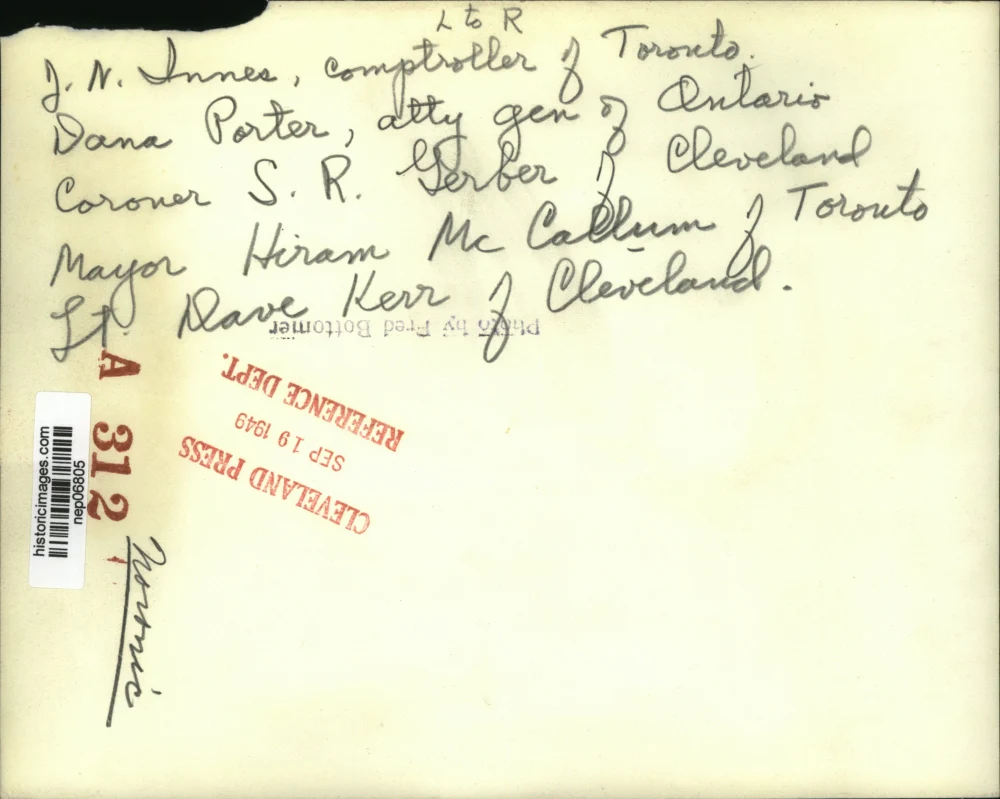 L to R
J. N. Innes, comptroller of Toronto.
Dana Porter, atty gen of Ontario
Coroner S. R. Gerber of Cleveland
Mayor Hiram Mc Callum of Toronto
Lt. Dave Kerr of Cleveland.
Photo by Fred Bottomer
CLEVELAND PRESS
SEP 19 1949
REFERENCE DEPT.
A 312
historicimages.com
nep06805
Noronic